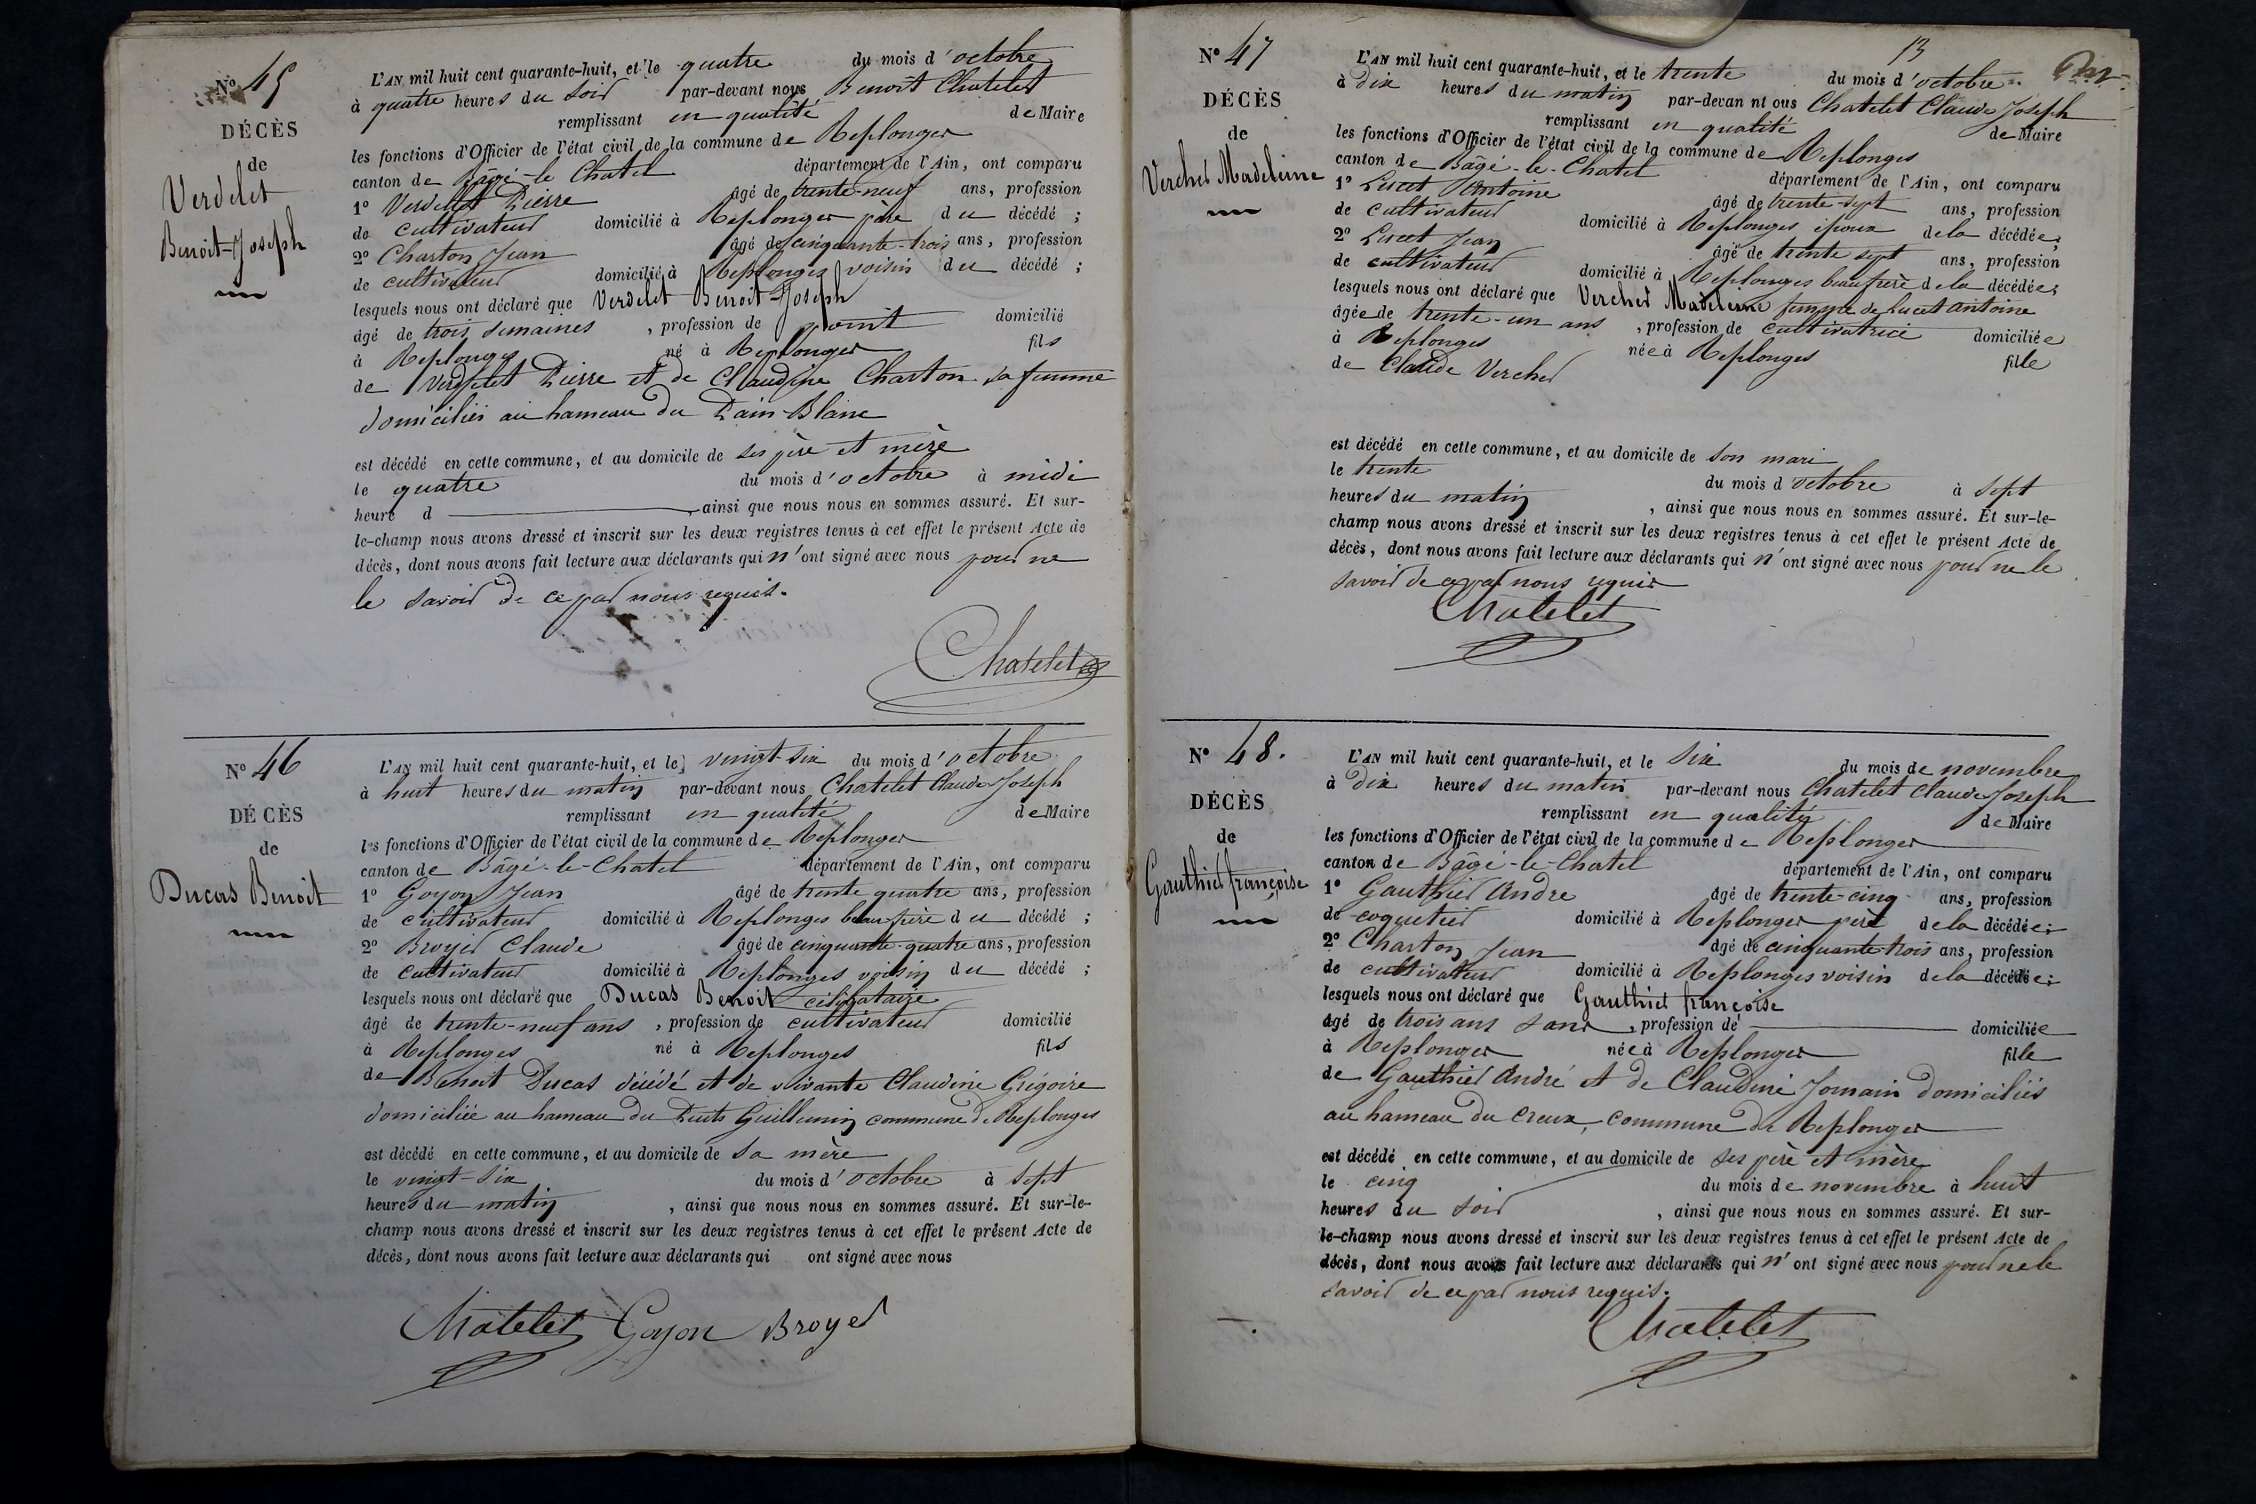 N° 45
DÉCÈS
de
Verdelet
Benoit-Joseph
L'AN mil huit cent quarante-huit, et le quatre du mois d'octobre
à quatre heures du soir par-devant nous Benoit Chatelet
remplissant en qualité de Maire
les fonctions d'Officier de l'état civil de la commune de Replonges
canton de Bâgé-le-Chatel département de l'Ain, ont comparu
1° Verdelet Pierre âgé de trente-neuf ans, profession
de cultivateur domicilié à Replonges père du décédé ;
2° Charton Jean âgé de cinquante-trois ans, profession
de cultivateur domicilié à Replonges voisin du décédé ;
lesquels nous ont déclaré que Verdelet Benoit-Joseph
âgé de trois semaines , profession de point domicilié
à Replonges né à Replonges fils
de Verdelet Pierre et de Claudine Charton sa femme
domiciliés au hameau du Pain-Blanc
est décédé en cette commune, et au domicile de ses père et mère
le quatre du mois d'octobre à midi
heure d ainsi que nous nous en sommes assuré. Et sur-
le-champ nous avons dressé et inscrit sur les deux registres tenus à cet effet le présent Acte de
décès, dont nous avons fait lecture aux déclarants qui n'ont signé avec nous pour ne
le savoir de ce par nous requis.
Chatelet
N° 46
DÉCÈS
de
Ducas Benoit
L'AN mil huit cent quarante-huit, et le vingt-six du mois d'octobre
à huit heures du matin par-devant nous Chatelet Claude-Joseph
remplissant en qualité de Maire
les fonctions d'Officier de l'état civil de la commune de Replonges
canton de Bâgé-le-Chatel département de l'Ain, ont comparu
1° Goyon Jean âgé de trente quatre ans, profession
de cultivateur domicilié à Replonges beau-frère du décédé ;
2° Broyer Claude âgé de cinquante-quatre ans, profession
de cultivateur domicilié à Replonges voisin du décédé ;
lesquels nous ont déclaré que Ducas Benoit célibataire
âgé de trente-neuf ans , profession de cultivateur domicilié
à Replonges né à Replonges fils
de Benoit Ducas décédé et de vivante Claudine Grégoire
domiciliée au hameau du Puits Guillemin commune de Replonges
est décédé en cette commune, et au domicile de sa mère
le vingt-six du mois d'octobre à sept
heures du matin , ainsi que nous nous en sommes assuré. Et sur-le-
champ nous avons dressé et inscrit sur les deux registres tenus à cet effet le présent Acte de
décès, dont nous avons fait lecture aux déclarants qui ont signé avec nous
Chatelet Goyon Broyer
13
N° 47
DÉCÈS
de
Vercher Madeleine
L'AN mil huit cent quarante-huit, et le trente du mois d'octobre
à dix heures du matin par-devan nt ous Chatelet Claude Joseph
remplissant en qualité de Maire
les fonctions d'Officier de l'état civil de la commune de Replonges
canton de Bâgé-le-Chatel département de l'Ain, ont comparu
1° Lucet Antoine âgé de trente-sept ans, profession
de cultivateur domicilié à Replonges époux de la décédée ;
2° Lucet Jean âgé de trente sept ans, profession
de cultivateur domicilié à Replonges beau frère de la décédée ;
lesquels nous ont déclaré que Vercher Madeleine femme de Lucet Antoine
âgée de trente-un ans , profession de cultivatrice domiciliée
à Replonges née à Replonges fille
de Claude Vercher
est décédé en cette commune, et au domicile de son mari
le trente du mois d'octobre à sept
heures du matin , ainsi que nous nous en sommes assuré. Et sur-le-
champ nous avons dressé et inscrit sur les deux registres tenus à cet effet le présent Acte de
décès, dont nous avons fait lecture aux déclarants qui n'ont signé avec nous pour ne le
savoir de ce par nous requis
Chatelet
N° 48.
DÉCÈS
de
Gauthier françoise
L'AN mil huit cent quarante-huit, et le six du mois de novembre
à dix heures du matin par-devant nous Chatelet Claude Joseph
remplissant en qualité de Maire
les fonctions d'Officier de l'état civil de la commune de Replonges
canton de Bâgé-le-Chatel département de l'Ain, ont comparu
1° Gauthier André âgé de trente-cinq ans, profession
de coquetier domicilié à Replonges père de la décédée ;
2° Charton Jean âgé de cinquante-trois ans, profession
de cultivateur domicilié à Replonges voisin de la décédée ;
lesquels nous ont déclaré que Gauthier françoise
âgé de trois ans sans , profession de domiciliée
à Replonges née à Replonges fille
de Gauthier André et de Claudine Jomain domiciliés
au hameau du Creux, commune de Replonges
est décédé en cette commune, et au domicile de ses père et mère
le cinq du mois de novembre à huit
heures du soir , ainsi que nous nous en sommes assuré. Et sur-
le-champ nous avons dressé et inscrit sur les deux registres tenus à cet effet le présent Acte de
décès, dont nous avons fait lecture aux déclarants qui n'ont signé avec nous pour ne le
savoir de ce par nous requis.
Chatelet